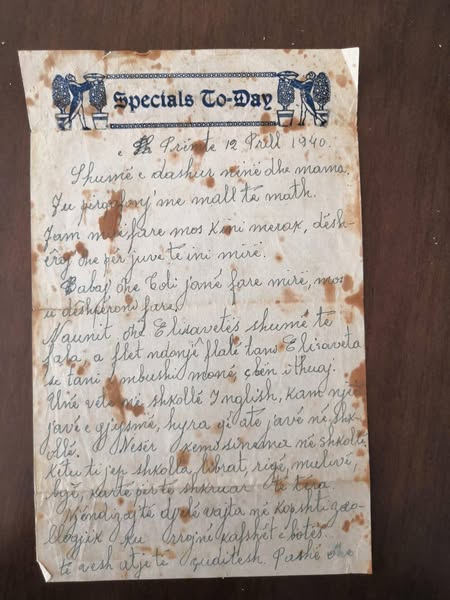 Specials To-Day
e Prmte 12 Prill 1940.
Shumë e dashur ninë dhe mama.
Ju përqafonj me mall të math.
Jam mirë fare mos kini merak, dësh-
ëroj dhe për juve të ini mirë.
Babaj dhe Coli janë fare mirë, mos
u dëshpëroni fare.
Naunit dhe Elisavetës shumë të
fala, a flet ndonjë fialë tano Elisaveta
se tani mbushi monë, çbën i thuaj.
Unë vete në shkollë Inglish, kam një
javë e gjysmë, hyra që atë javë në shk-
ollë. Nesër kemo sinema në shkollë.
Këtu të jep shkolla, librat, rigë, mulivë,
bojë, kartë për të shkruar të tëra.
të djelë vajta në kopshti zoo-
llogjik ku rrojnë kafshët e botës.
të vesh atje të çuditesh. Pashë dhe